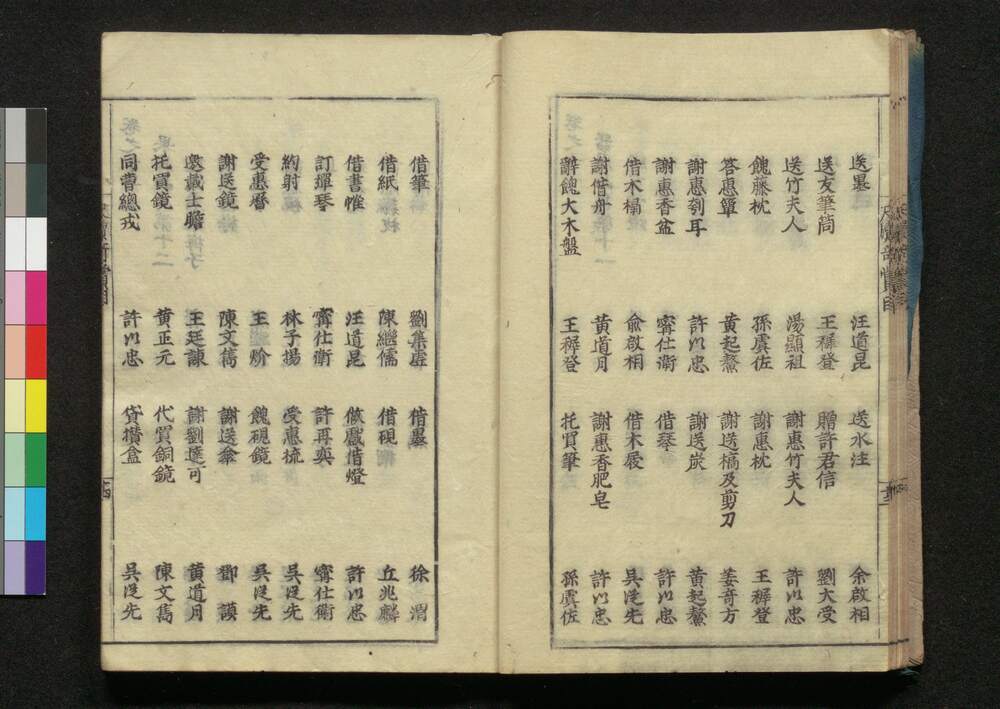 送墨 汪道昆 送水注 余啟相
送友筆筒 王穉登 贈許君信 劉大受
送竹夫人 湯顯祖 謝惠竹夫人 許以忠
餽藤枕 孫虞佐 謝惠枕 王穉登
答惠簟 黄起鰲 謝送槁及剪刀 姜奇方
謝惠刳耳 許以忠 謝送炭 黄起鰲
謝惠香盆 寗仕衛 借琴 許以忠
借木榻 俞啟相 借木屐 吳從先
謝借舟 黄道月 謝惠香肥皂 許以忠
辭餽大木盤 王穉登 托買筆 孫虞佐
借筆 劉集虛 借墨 徐渭
借紙 陳繼儒 借硯 丘兆麟
借書帷 汪道昆 做戲借燈 許以忠
訂彈琴 寗仕衛 許再奕 寗仕衛
約射 林子揚 受惠梳 吳從先
受惠曆 王 餽硯鏡 吳從先
謝送鏡 陳文鎬 謝送傘 鄧謨
邀戴士瞻 王廷諫 謝劉達可 黄道月
托買鏡 黄正元 代買銅鏡 陳文鎬
同曹總戎 許以忠 貸攢盒 吳從先